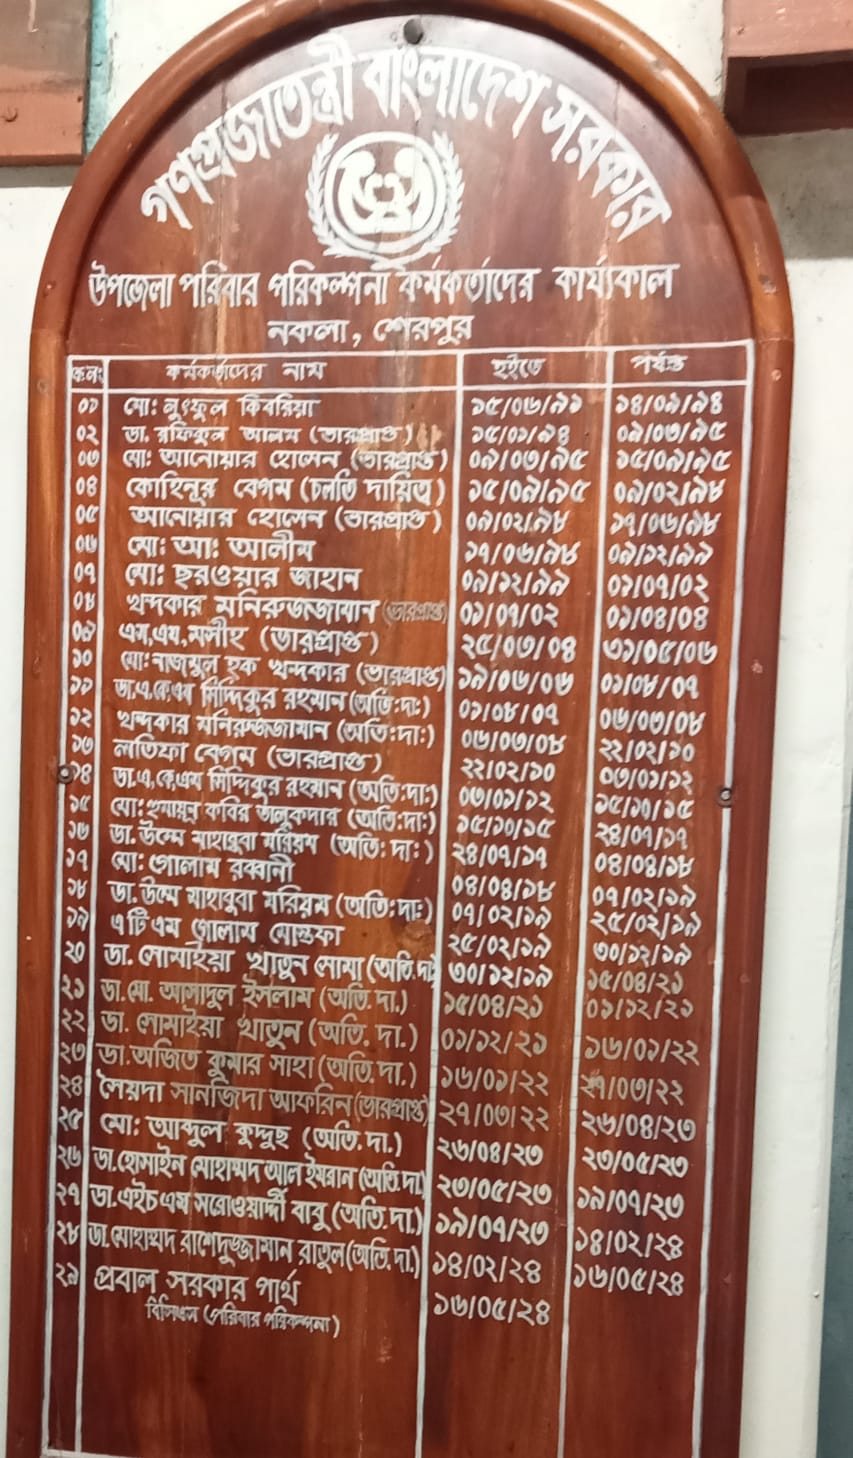 গণপ্রজাতন্ত্রী বাংলাদেশ সরকার
উপজেলা পরিবার পরিকল্পনা কর্মকর্তাদের কার্য্যকাল
নকলা, শেরপুর
ক্রনং কর্মকর্তাদের নাম হইতে পর্যন্ত
০১ মো: লুৎফুল কিবরিয়া ১৫/০৬/৯১ ১৪/০১/৯৪
০২ ডা. রফিকুল আলম (ভারপ্রাপ্ত) ১৫/০১/৯৪ ০৯/০৩/৯৫
০৩ মো: আনোয়ার হোসেন (ভারপ্রাপ্ত) ০৯/০৩/৯৫ ১৫/০৯/৯৫
০৪ কোহিনূর বেগম (চলতি দায়িত্ব) ১৫/০৯/৯৫ ০৯/০২/৯৮
০৫ আনোয়ার হোসেন (ভারপ্রাপ্ত) ০৯/০২/৯৮ ১৭/০৬/৯৮
০৬ মো: আ: আলীম ১৭/০৬/৯৮ ০৯/১২/৯৯
০৭ মো: ছরওয়ার জাহান ০৯/১২/৯৯ ০১/০৭/০২
০৮ খন্দকার মনিরুজজামান (ভারপ্রাপ্ত) ০১/০৭/০২ ০১/০৪/০৪
০৯ এস,এম,মসীহ (ভারপ্রাপ্ত) ২৫/০৩/০৪ ৩১/০৫/০৬
১০ মো: নাজমুল হক খন্দকার (ভারপ্রাপ্ত) ১৯/০৬/০৬ ০১/০৮/০৭
১১ ডা.এ.কে.এম সিদ্দিকুর রহমান (অতি:দা:) ০১/০৮/০৭ ০৬/০৩/০৮
১২ খন্দকার মনিরুজজামান (অতি:দা:) ০৬/০৩/০৮ ২২/০২/১০
১৩ লতিফা বেগম (ভারপ্রাপ্ত) ২২/০২/১০ ০৩/০১/১২
১৪ ডা.এ.কে.এম সিদ্দিকুর রহমান (অতি:দা:) ০৩/০১/১২ ১৫/১০/১৫
১৫ মো: হুমায়ুন কবির তালুকদার (অতি:দা:) ১৫/১০/১৫ ২৪/০৭/১৭
১৬ ডা. উম্মে মাহাবুবা মরিয়ম (অতি: দা:) ২৪/০৭/১৭ ০৪/০৪/১৮
১৭ মো: গোলাম রব্বানী ০৪/০৪/১৮ ০৭/০২/১৯
১৮ ডা. উম্মে মাহাবুবা মরিয়ম (অতি:দা:) ০৭/০২/১৯ ২৫/০২/১৯
১৯ এ টি এম গোলাম মোস্তফা ২৫/০২/১৯ ৩০/১২/১৯
২০ ডা. সোমাইয়া খাতুন সোমা (অতি.দা) ৩০/১২/১৯ ১৫/০৪/২১
২১ ডা.মো. আসাদুল ইসলাম (অতি.দা.) ১৫/০৪/২১ ০১/১২/২১
২২ ডা. সোমাইয়া খাতুন (অতি. দা.) ০১/১২/২১ ১৬/০১/২২
২৩ ডা.অজিত কুমার সাহা (অতি. দা.) ১৬/০১/২২ ২৭/০৩/২২
২৪ সৈয়দা সানজিদা আফরিন (ভারপ্রাপ্ত) ২৭/০৩/২২ ২৬/০৪/২৩
২৫ মো: আব্দুল কুদ্দুছ (অতি.দা.) ২৬/০৪/২৩ ২৩/০৫/২৩
২৬ ডা.হোসাইন মোহাম্মদ আল ইমরান (অতি.দা.) ২৩/০৫/২৩ ১৯/০৭/২৩
২৭ ডা.এইচ এম সরোওয়ার্দ্দী বাবু (অতি.দা.) ১৯/০৭/২৩ ১৪/০২/২৪
২৮ ডা.মোহাম্মদ রাশেদুজ্জামান রাতুল (অতি.দা.) ১৪/০২/২৪ ১৬/০৫/২৪
২৯ প্রবাল সরকার পার্থ ১৬/০৫/২৪
বিসিএস (পরিবার পরিকল্পনা)